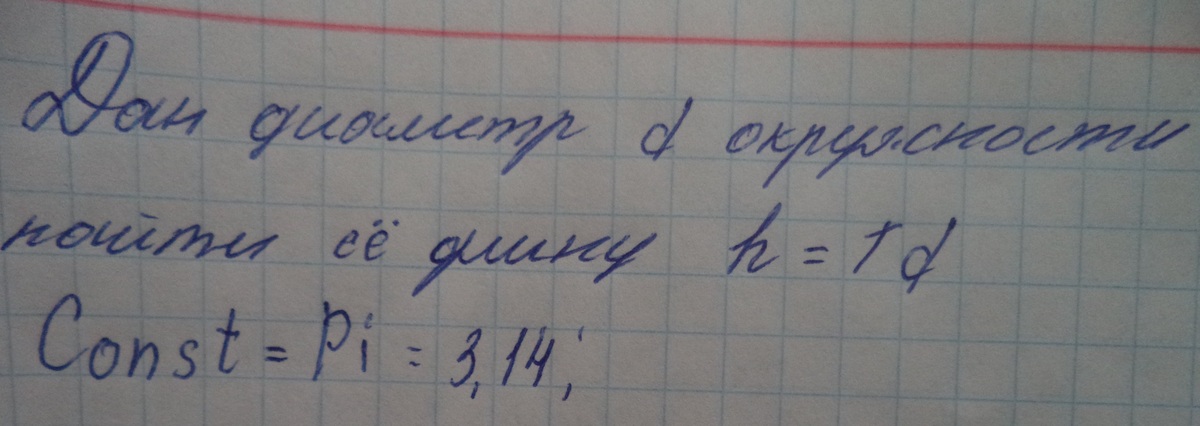 Дан диаметр d окружности
найти её длину h = π d
Const = Pi = 3,14;